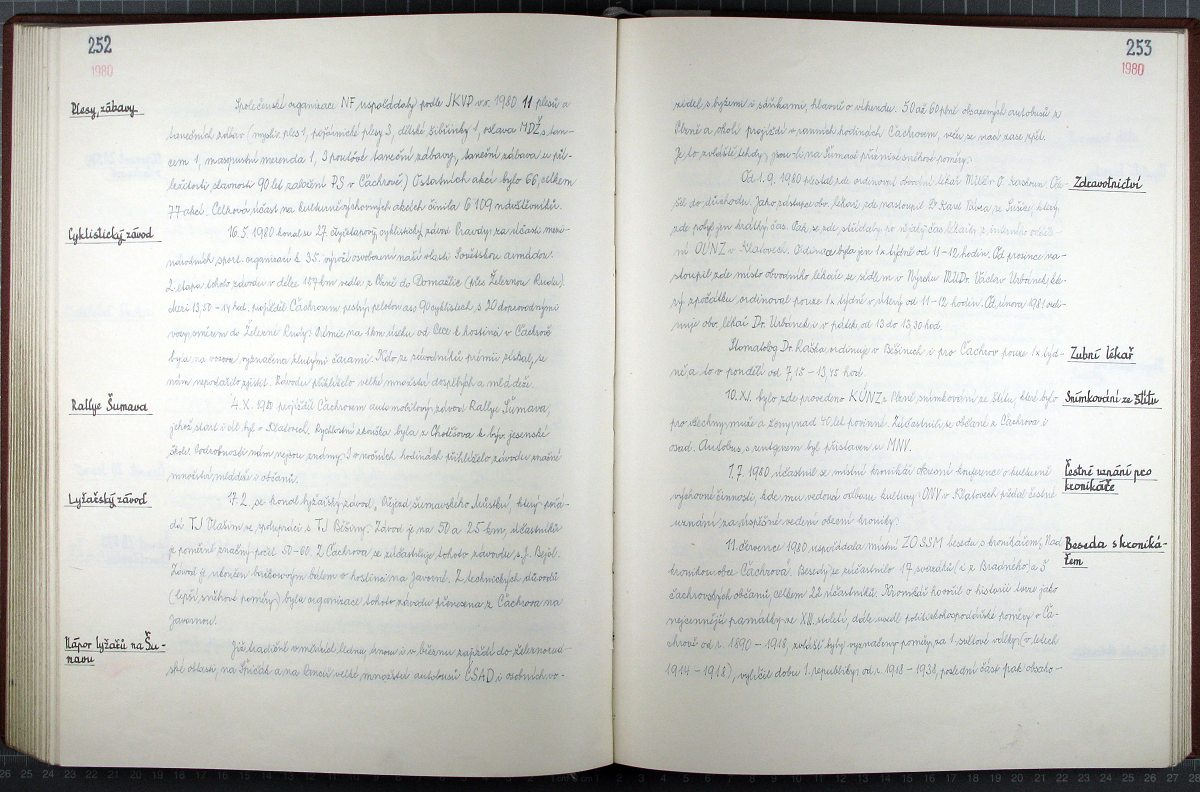 252
1980
Plesy, zábavy
Společenské organizace NF uspořádaly podle JKVP v r. 1980 11 plesů a
tanečních zábav (mysliv. ples 1, požárnické plesy 3, dětské šibřinky 1, oslava MDŽ s tan-
cem 1, maškarní merenda 1, 3 pouťové taneční zábavy, taneční zábava u pří-
ležitosti slavnosti 90 let založení PS v Čachrově) Ostatních akcí bylo 66, celkem
77 akcí. Celková účast na kulturně výchovných akcích činila 6 109 návštěvníků.
Cyklistický závod
16. 5. 1980 konal se 27. čtyřetapový cyklistický závod Pravdy za účasti mezi-
národních sport. organizací k 35. výročí osvobození naší vlasti Sovětskou armádou.
2. etapa tohoto závodu v délce 187 km vedla z Plzně do Domažlic (přes Železnou Rudu).
Mezi 13,50 - 14 hod. projížděl Čachrovem pestrý peloton asi 90 cyklistů s 20 doprovodnými
vozy směrem do Železné Rudy. Odměna na 1 km úseku od k hostinci v Čachrově
byla na vozovce vyznačena žlutými čarami. Kdo ze závodníků prémii získal, se
nám nepodařilo zjistit. Závodu přihlíželo velké množství dospělých a mládeže.
Rallye Šumava
4. X. 1980 projížděl Čachrovem automobilový závod Rallye Šumava,
jehož start i cíl byl v Klatovech. Rychlostní zkouška byla z Chotěšova k býv. jesenské
škole. Podrobnosti nám nejsou známy. I v nočních hodinách přihlíželo závodu značné
množství mládeže i občanů.
Lyžařský závod
17. 2. se konal lyžařský závod „Přejezd šumavského Můstku", který pořá-
dá TJ Vlašim ve spolupráci s TJ Běšiny. Závod je na 50 a 25 km, účastníků
je poměrně značný počet 50-60. Z Čachrova se zúčastňuje tohoto závodu s. J. Bejvl.
Závod je ukončen bačkorovým bálem v hostinci na Javorné. Z technických důvodů
(lepší sněhové poměry) byla organizace tohoto závodu převezena z Čachrova na
Javornou.
Nápor lyžařů na Šu-
mavu
Již tradičně v měsících lednu, únoru i v březnu zajíždí do železnorud-
ské oblasti, na Špičák a na Gerlovu velké množství autobusů ČSAD i osobních vo-
253
1980
zidel s lyžemi i sáňkami, hlavně o víkendu. 50 až 60 plně obsazených autobusů z
Plzně a okolí projíždí v ranních hodinách Čachrovem, večer se vrací zase zpět.
Je to zvláště tehdy, jsou-li na Šumavě příznivé sněhové poměry.
Zdravotnictví
Od 1. 9. 1980 přestal zde ordinovat obvodní lékař MUDr O. Ode-
šel do důchodu. Jako zástupce obv. lékaře zde nastoupil Dr Karel ze Sušice, který
zde pobyl jen krátký čas. Pak se zde střídaly po nějaký čas lékařky z interního odděle-
ní OÚNZ v Klatovech. Ordinace byla jen 1x týdně od 11-12 hodin. Od prosince na-
stoupil zde místo obvodního lékaře se sídlem v Nýrsku MUDr Václav Urbánek, kte-
rý zpočátku ordinoval pouze 1x týdně v úterý od 11-12 hodin. Od února 1981 ordi-
nuje obv. lékař Dr. Urbánek i v pátek od 13 do 13,30 hod.
Zubní lékař
Stomatolog Dr. Raška ordinuje v Běšinech i pro Čachrov pouze 1x týd-
ně a to v pondělí od 7,15 - 13,45 hod.
Snímkování ze štítu
10. XI. bylo zde provedeno KÚNZ z Plzně snímkování ze štítu, které bylo
pro všechny muže a ženy nad 40 let povinné. Zúčastnili se občané z Čachrova i
osad. Autobus s rentgenem byl přistaven u MNV.
Čestné uznání pro
kronikáře
1. 7. 1980 účastnil se místní kronikář okresní konference o kulturně
výchovné činnosti, kde mu vedoucí odboru kultury ONV v Klatovech předal čestné
uznání za úspěšné vedení obecní kroniky.
Beseda s kroniká-
řem
11. července 1980 uspořádala místní ZO SSM besedu s kronikářem „Nad
kronikou obce Čachrova". Besedy se zúčastnilo 17 svazáků (i z Bradného) a 5
čachrovských občanů, celkem 22 účastníků. Kronikář hovořil o historii tvrze jako
nejcennější památky ze XIV. století, dále uvedl politickohospodářské poměry v Ča-
chrově od r. 1890 - 1918, zvlášť byly vyznačeny poměry za 1. světové války (v letech
1914 - 1918), vylíčil dobu 1. republiky od r. 1918 - 1938, poslední část pak obsaho-